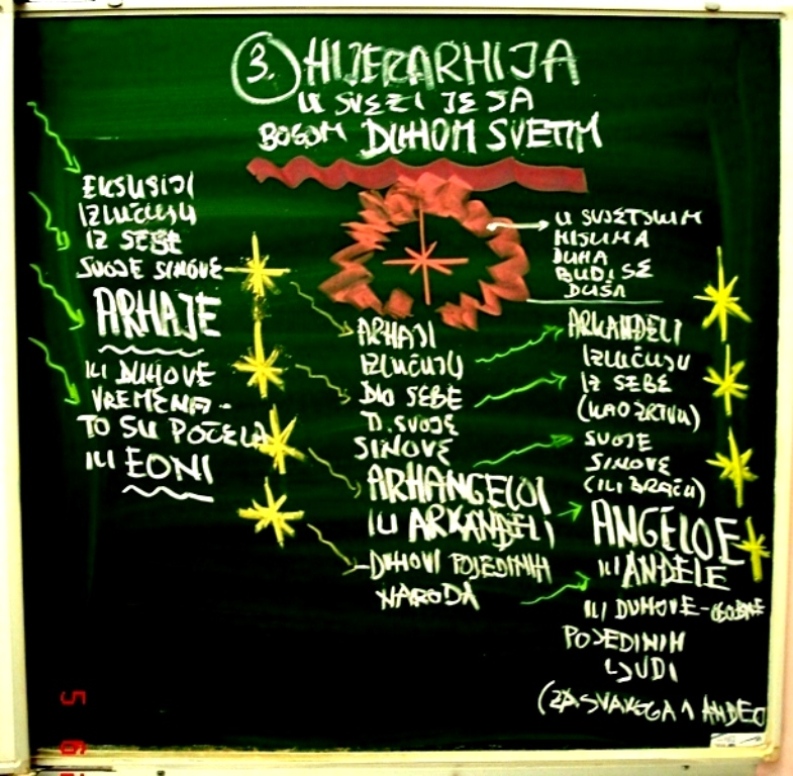 3. HIJERARHIJA
U SVEZI JE SA
BOGOM DUHOM SVETIM
EKSUSIJI
IZLUČUJU
IZ SEBE
SVOJE SINOVE
ARHAJE
ILI DUHOVE
VREMENA -
TO SU POČELA
ILI EONI
ARHAJI
IZLUČUJU
DIO SEBE
T. SVOJE
SINOVE
ARHANGELOI
ILI ARKANĐELI
- DUHOVI POJEDINIH
NARODA
U SVJETSKIM
MISLIMA
DUHA
BUDI SE
DUŠA
ARKANĐELI
IZLUČUJU
IZ SEBE
(KAO ŽRTVU)
SVOJE
SINOVE
(ILI BRAĆU)
ANGELOE
ILI ANĐELE
ILI DUHOVE - OSOBNE
POJEDINIH
LJUDI
(ZA SVAKOGA 1 ANĐEO